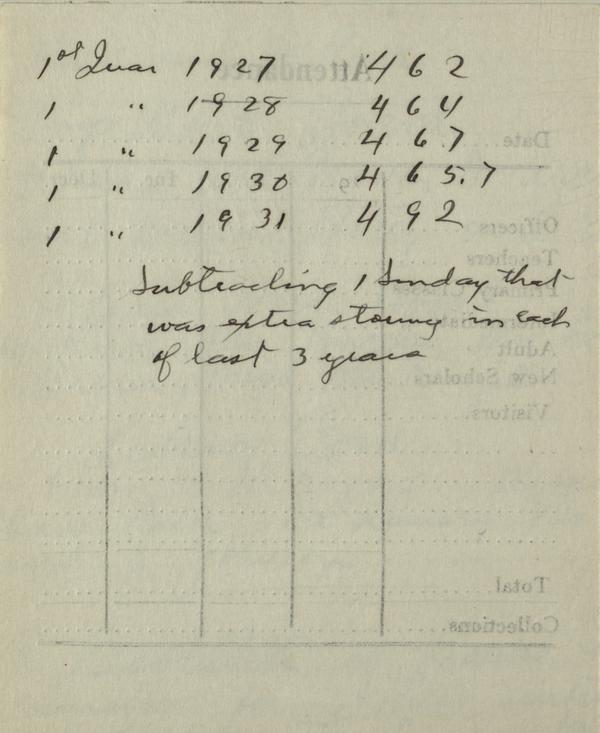 1st Quar 1927 462
1 " 1928 464
1 " 1929 467
1 " 1930 465.7
1 " 1931 492
Subtracting 1 Sunday that
was extra stormy in each
of last 3 years
Attendance
Date
19 Inc. Dec.
Officers
Teachers
Primary Classes
Adult
New Scholars
Visitors
Total
Collections